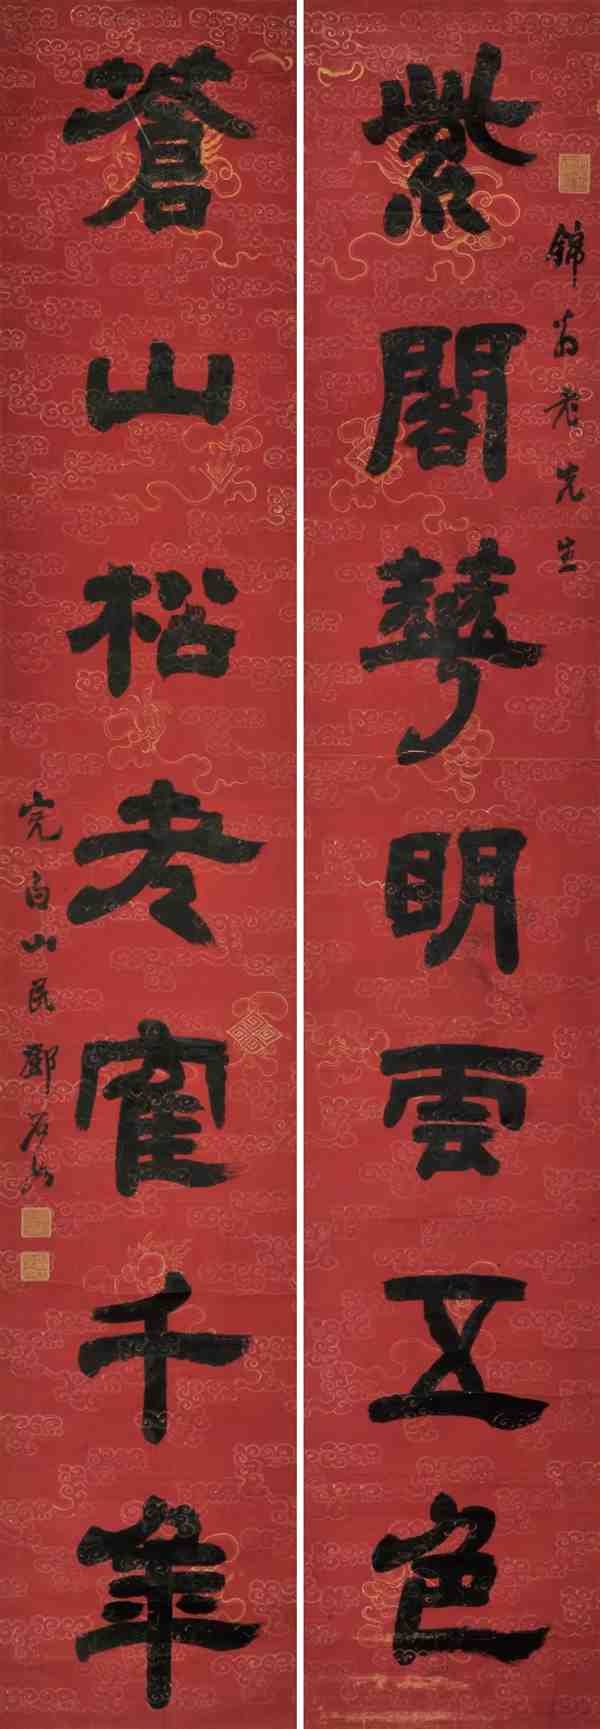 錦翁老先生
紫閣蕚明雲五色
蒼山松老寉千年
完白山民鄧石如